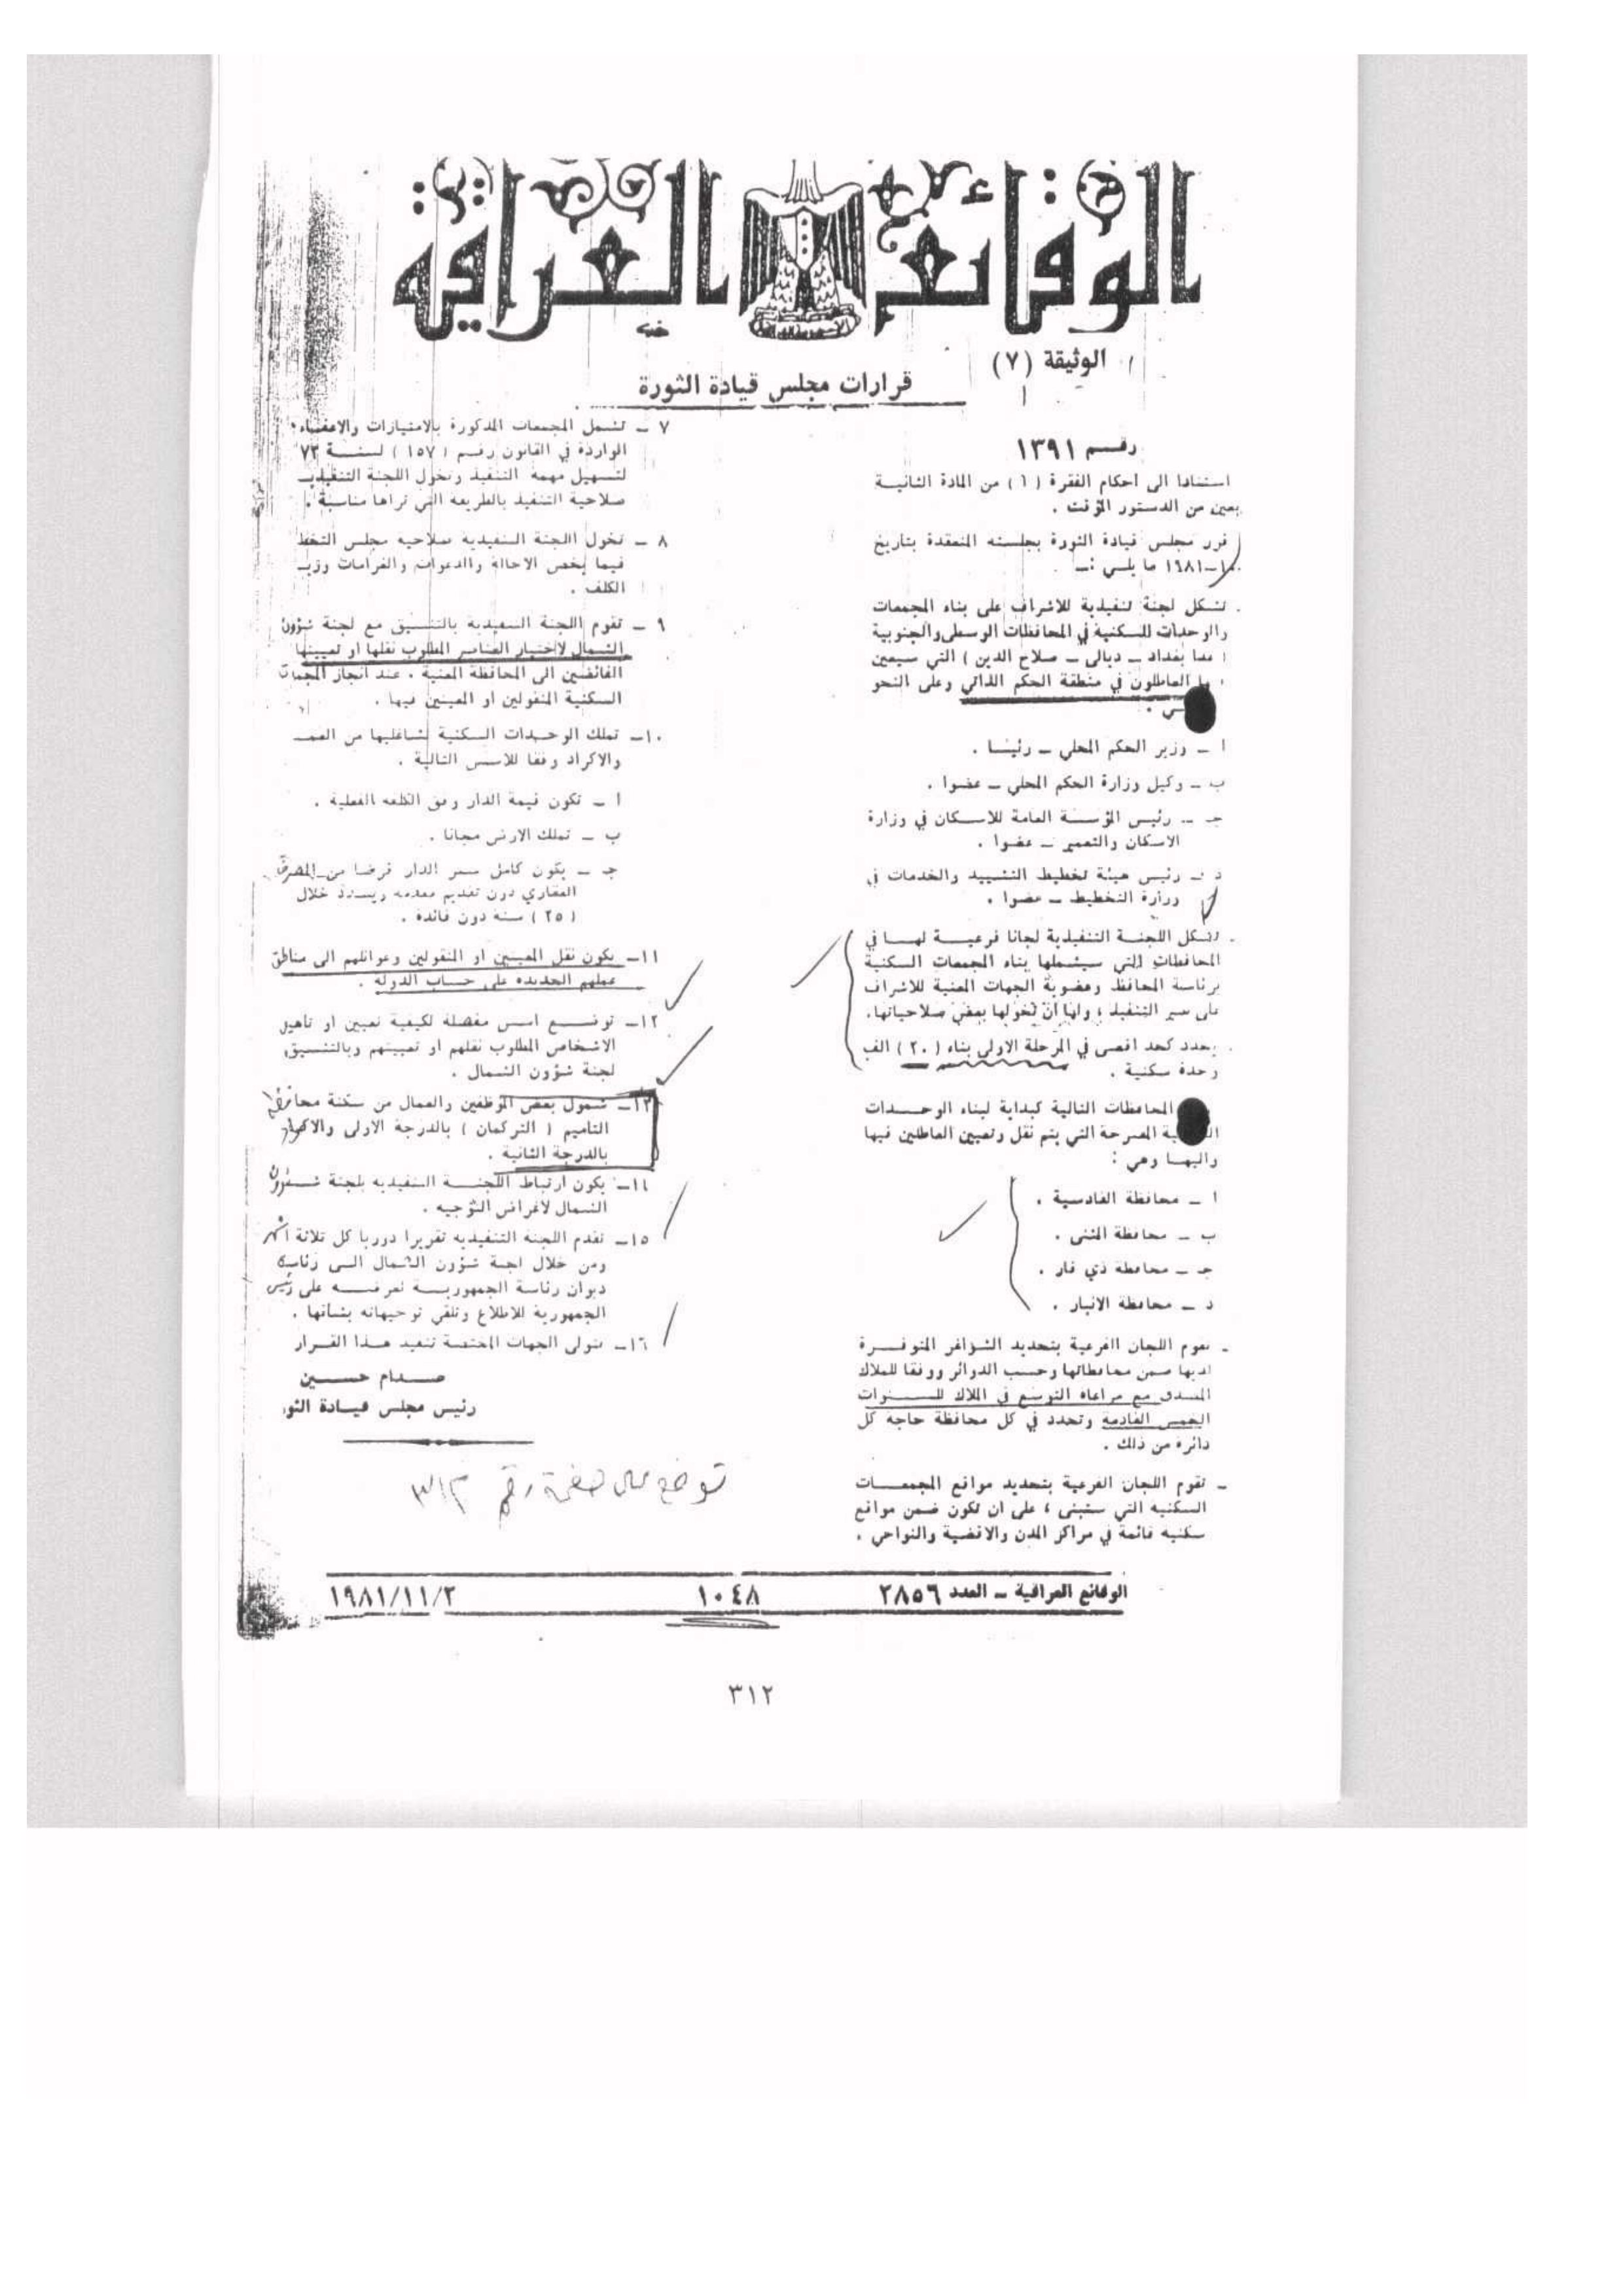 الوقائع العراقية
الوثيقة (٧)
قرارات مجلس قيادة الثورة
رقم ١٣٩١
استنادا الى احكام الفقرة (١) من المادة الثانية
بعين من الدستور المؤقت .
قرر مجلس قيادة الثورة بجلسته المنعقدة بتاريخ
١٩٨١ ما يلي :ـ
. تشكل لجنة تنفيذية للاشراف على بناء المجمعات
والوحدات السكنية في المحافظات الوسطى والجنوبية
( عدا بغداد ـ ديالى ـ صلاح الدين ) التي سيعين
العاطلون في منطقة الحكم الذاتي وعلى النحو
ا ـ وزير الحكم المحلي ـ رئيسا .
ب ـ وكيل وزارة الحكم المحلي ـ عضوا .
جـ ـ رئيس المؤسسة العامة للاسكان في وزارة
الاسكان والتعمير ـ عضوا .
د ـ رئيس هيئة تخطيط التشييد والخدمات في
وزارة التخطيط ـ عضوا .
. تشكل اللجنة التنفيذية لجانا فرعية لها في
المحافظات التي سيشملها بناء المجمعات السكنية
برئاسة المحافظ وعضوية الجهات المعنية للاشراف
على سير التنفيذ ، ولها أن تخولها بعض صلاحياتها.
. يحدد كحد اقصى في المرحلة الاولى بناء ( ٢٠ ) الف
وحدة سكنية .
المحافظات التالية كبداية لبناء الوحدات
المقترحة التي يتم نقل وتعيين العاطلين فيها
واليها وهي :
ا ـ محافظة القادسية .
ب ـ محافظة المثنى .
جـ ـ محافظة ذي قار .
د ـ محافظة الانبار .
ـ تقوم اللجان الفرعية بتحديد الشواغر المتوفرة
لديها ضمن محافظاتها وحسب الدوائر ووفقا للملاك
المصدق مع مراعاة التوسع في الملاك للسنوات
الخمس القادمة وتحدد في كل محافظة حاجة كل
دائرة من ذلك .
ـ تقوم اللجان الفرعية بتحديد مواقع المجمعات
السكنية التي ستبنى ، على ان تكون ضمن مواقع
سكنية قائمة في مراكز المدن والاقضية والنواحي .
٧ ـ تشمل المجمعات المذكورة بالامتيازات والاعفاء
الواردة في القانون رقم ( ١٥٧ ) لسنة ٧٣
لتسهيل مهمة التنفيذ وتخول اللجنة التنفيذية
صلاحية التنفيذ بالطريقة التي تراها مناسبة .
٨ ـ تخول اللجنة التنفيذية صلاحية مجلس التخط
فيما يخص الاحالة والدعوات والغرامات وزيـ
الكلف .
٩ ـ تقوم اللجنة التنفيذية بالتنسيق مع لجنة شؤون
الشمال لاختيار العناصر المطلوب نقلها او تعيينها
الفائضين الى المحافظة المعنية . عند انجاز المجمعات
السكنية المنقولين او المعينين فيها .
١٠ـ تملك الوحدات السكنية لشاغليها من العمـ
والاكراد وفقا للاسس التالية .
أ ـ تكون قيمة الدار وفق الكلفة الفعلية .
ب ـ تملك الارض مجانا .
جـ ـ يكون كامل سعر الدار قرضا من المصرف
العقاري دون تقديم مقدمة ويسدد خلال
( ٢٥ ) سنة دون فائدة .
١١ـ يكون نقل المعينين او المنقولين وعوائلهم الى مناطق
عملهم الجديدة على حساب الدولة .
١٢ـ توضع اسس مفصلة لكيفية تعيين او تأهيل
الاشخاص المطلوب نقلهم او تعيينهم وبالتنسيق
لجنة شؤون الشمال .
١٣ـ شمول بعض الموظفين والعمال من سكنة محافظة
التأميم ( التركمان ) بالدرجة الاولى والاكراد
بالدرجة الثانية .
١٤ـ يكون ارتباط اللجنة التنفيذية بلجنة شؤون
الشمال لاغراض التوجيه .
١٥ـ تقدم اللجنة التنفيذية تقريرا دوريا كل ثلاثة اشهر
ومن خلال لجنة شؤون الشمال الى رئاسة
ديوان رئاسة الجمهورية لعرضه على رئيس
الجمهورية للاطلاع وتلقي توجيهاته بشأنها .
١٦ـ تتولى الجهات المختصة تنفيذ هذا القرار
صدام حسين
رئيس مجلس قيادة الثور
توضع على صفحة رقم ٣١٢
الوقائع العراقية ـ العدد ٢٨٥٦
١٠٤٨
١٩٨١/١١/٢
٣١٢